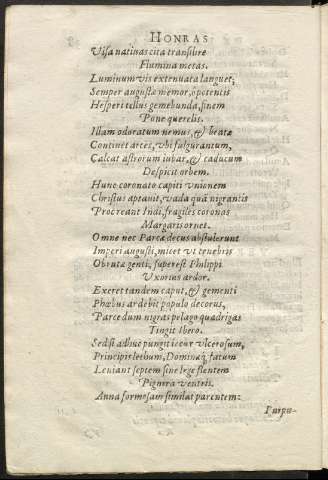 HONRAS
Visa natinas cita transibre
Flumina metas.
Luminum vis extenuata languet;
Semper augustæ memor, ô potentis
Hesperi tellus gemebunda, finem
Pone querelis.
Illam odoratum nemus, & beatæ
Continet arces, vbi fulgurantum,
Calcat astrorum iubar, & caducum
Despicit orbem.
Hunc coronato capiti vnionem
Christus aptauit, vada quâ nigrantis
Procreant Indi, fragiles coronas
Margaris ornet.
Omne nec Parcæ decus abstulerunt
Imperi augusti, micet vt tenebris
Obrutæ genti, superest Philippi
Vxorius ardor.
Exeret tandem caput, & gementi
Phœbus ardebit populo decorus,
Parce dum nigras pelago quadrigas
Tingit Ibero.
Sed si adhuc pungit iecur vlcerosum,
Principis lethum, Dominæq; fatum
Leniant septem sine lege flentem
Pignora ventris.
Anna formosam similat parentem:
Purpu-